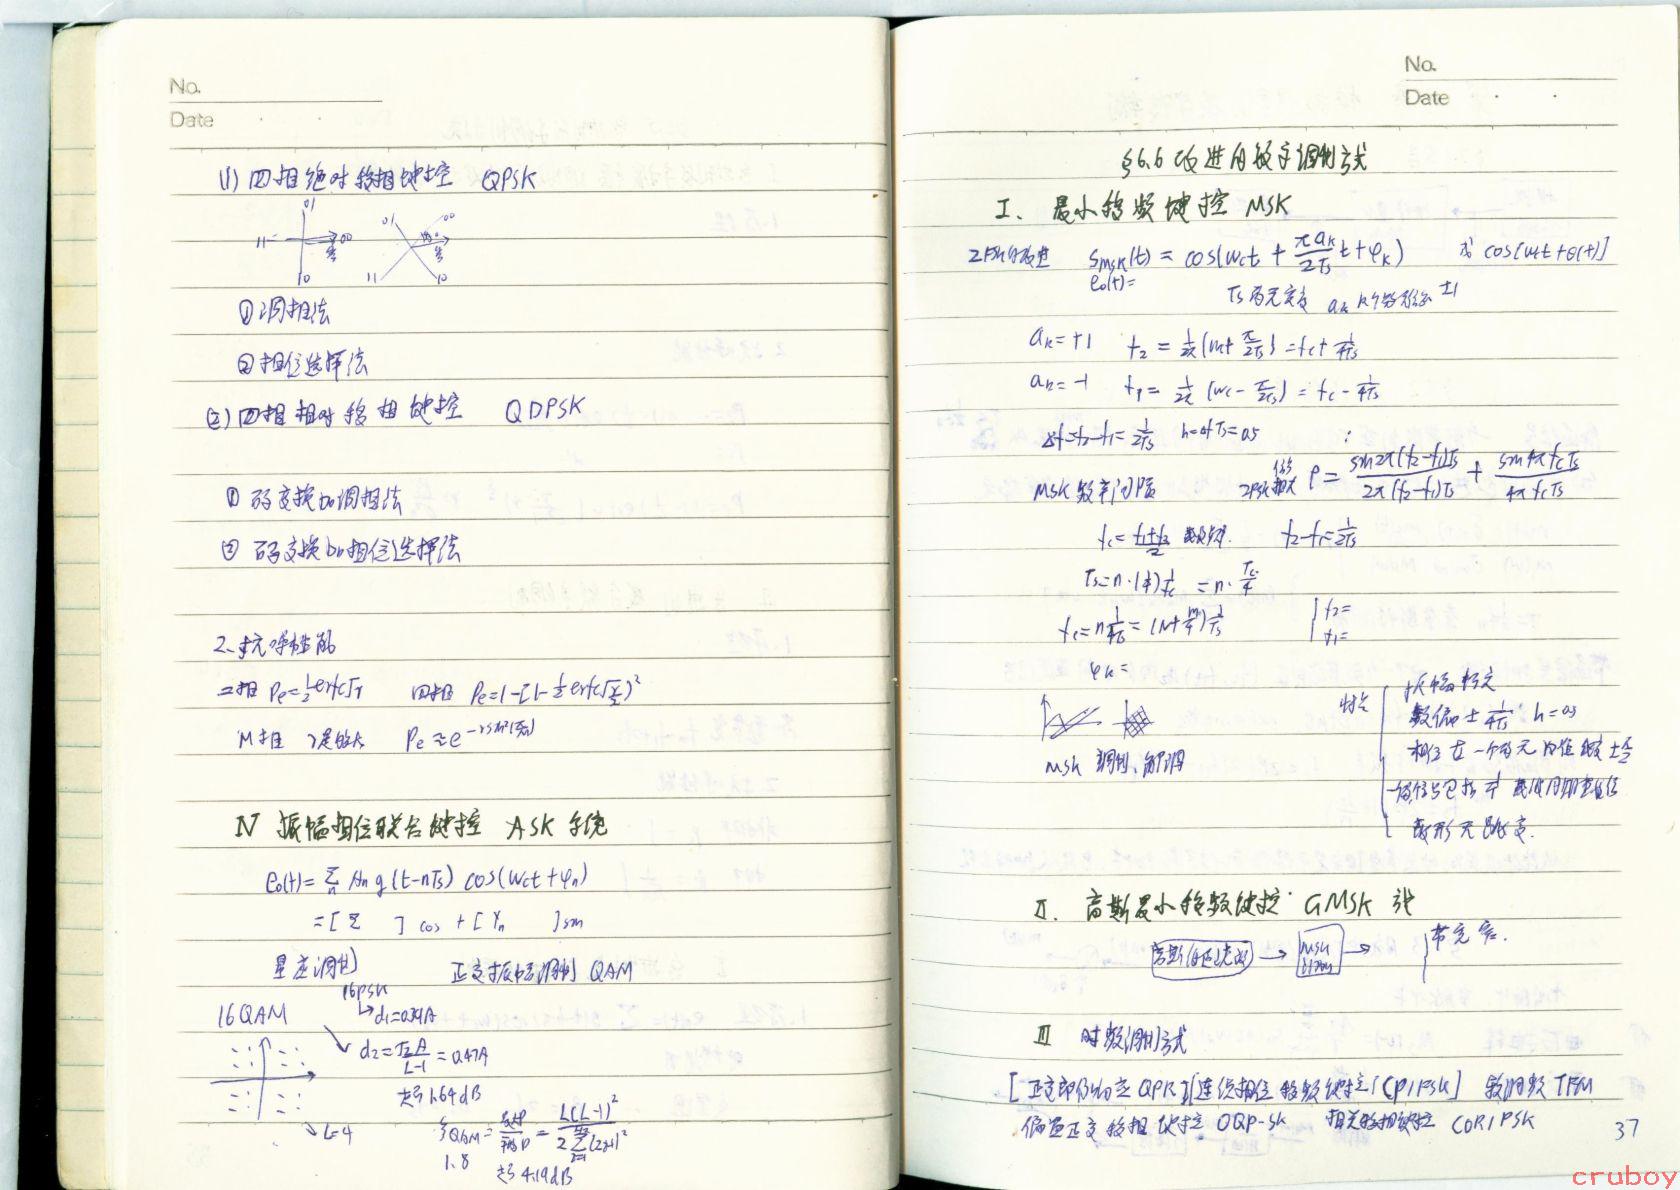 No.
Date
(1) 四相绝对移相键控 QPSK
01
11 00
10
01 00
11 10
① 调相法
② 相位选择法
(2) 四相相对移相键控 QDPSK
① 码变换加调相法
② 码变换加相位选择法
2. 抗噪性能
二相 Pe=½erfc√r 四相 Pe=1-[1-½erfc√(r/2)]²
M相 r足够大 Pe≈e^(-r sin²(π/M))
IV 振幅相位联合键控 ASK 系统
e₀(t)=Σₙ Aₙ g(t-nTs) cos(Wct+φₙ)
=[Σ ] cos +[Yₙ ] sin
星座调制 正交振幅调制 QAM
16PSK
16QAM d₁=0.39A
d₂=√2A/(L-1)=0.47A
差 1.64dB
L=4
ξQAM= = L(L-1)²/2Σ(2i-1)²
1.8
差 4.19dB
No.
Date
§6.6 改进的数字调制方式
I. 最小移频键控 MSK
2FSK的改进 S_MSK(t) = cos(Wct + πa_k/2Ts t+φ_k) 或 cos[Wct+θ(t)]
e₀(t)=
Ts 码元宽度 a_k 第k个数据 ±1
a_k=+1 f₂ = 1/2π(Wc+π/2Ts) =fc+1/4Ts
a_k=-1 f₁= 1/2π (Wc-π/2Ts) = fc-1/4Ts
Δf=f₂-f₁=1/2Ts h=Δf Ts=0.5
MSK 频率间隔 2FSK ρ= sin2π(f₂-f₁)Ts/2π(f₂-f₁)Ts + sin4πfcTs/4πfcTs
fc=(f₁+f₂)/2 f₂-f₁=1/2Ts
Ts=n·(1/4)1/fc =n·Tc/4
fc=n1/4Ts=(N+m/4)1/Ts f₂=
f₁=
φ_k=
MSK 调制 解调
特点 振幅恒定
频偏±1/4Ts h=0.5
相位在一个码元内线性±π/2
波形无跳变.
II. 高斯最小移频键控 GMSK 式
高斯低通滤波 → MSK → 带宽窄.
III 时频调制方式
[正交部分响应 QPR] [连续相位移频键控 (CPFSK] TFM
偏置正交移相键控 OQPSK 相关移相键控 CORPSK
37
cruboy